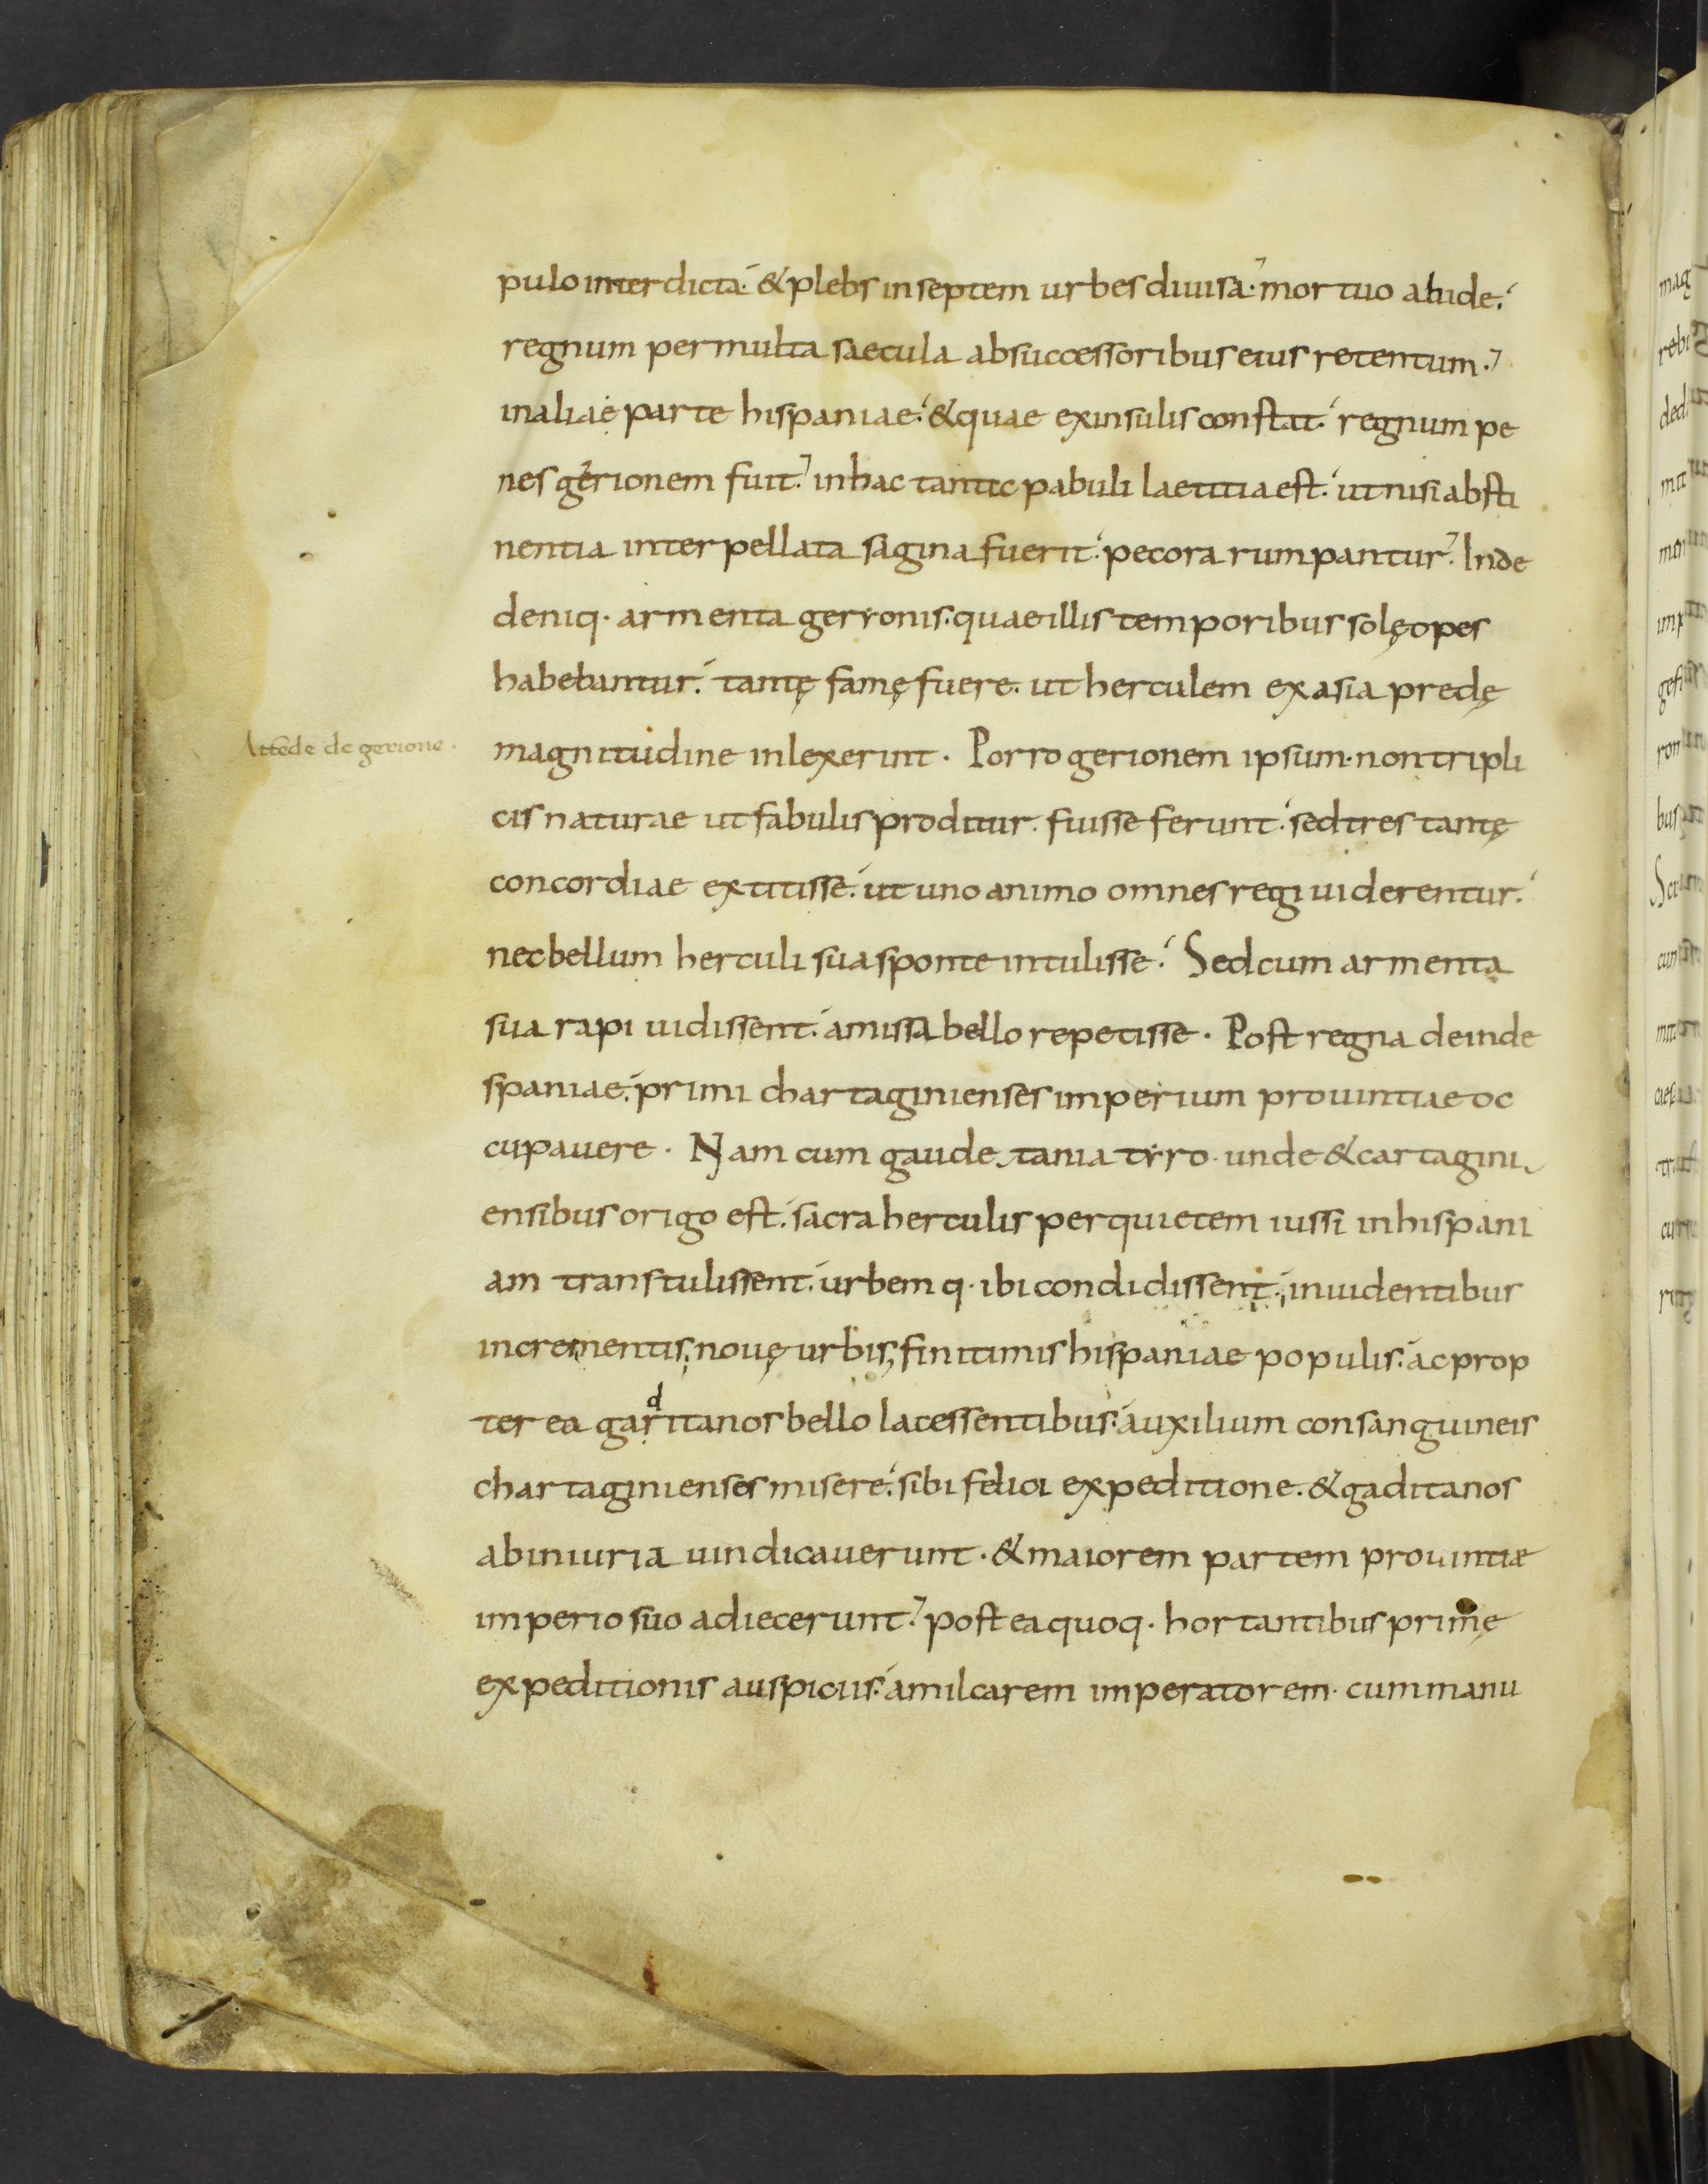 pulo interdicta. & plebs in septem urbes diuisa. mortuo abide.
regnum per multa saecula ab successoribus eius retentum.
in aliae parte hispaniae. & quae ex insulis constat. regnum pe
nes gerionem fuit. in hac tante pabuli laetitia est. ut nisi absti
nentia interpellata sagina fuerit. pecora rumpantur. Inde
deniq. armenta geryonis. quae illis temporibus solę opes
habebantur. tantę famę fuere. ut herculem ex asia predę
Attēde de gerione.
magnitudine inlexerint. Porro gerionem ipsum. non tripli
cis naturae ut fabulis proditur. fuisse ferunt. sed tres tantę
concordiae extitisse. ut uno animo omnes regi uiderentur.
nec bellum herculi sua sponte intulisse. Sed cum armenta
sua rapi uidissent. amissa bello repetisse. Post regna deinde
spaniae. primi chartaginienses imperium prouintiae oc
cupauere. Nam cum gaude tania tyro. unde & cartagini
ensibus origo est. sacra herculis per quietem iussi in hispani
am transtulissent. urbemq. ibi condidissent; inuidentibus
incrementis; nouę urbis; finitimis hispaniae populis. ac prop
d
ter ea garitanos bello lacessentibus. auxilium consanguineis
chartaginienses misere. sibi felici expeditione. & gaditanos
ab iniuria uindicauerunt. & maiorem partem prouintiæ
imperio suo adiecerunt. post ea quoq. hortantibus primę
expeditionis auspiciis. amilcarem imperatorem. cum manu